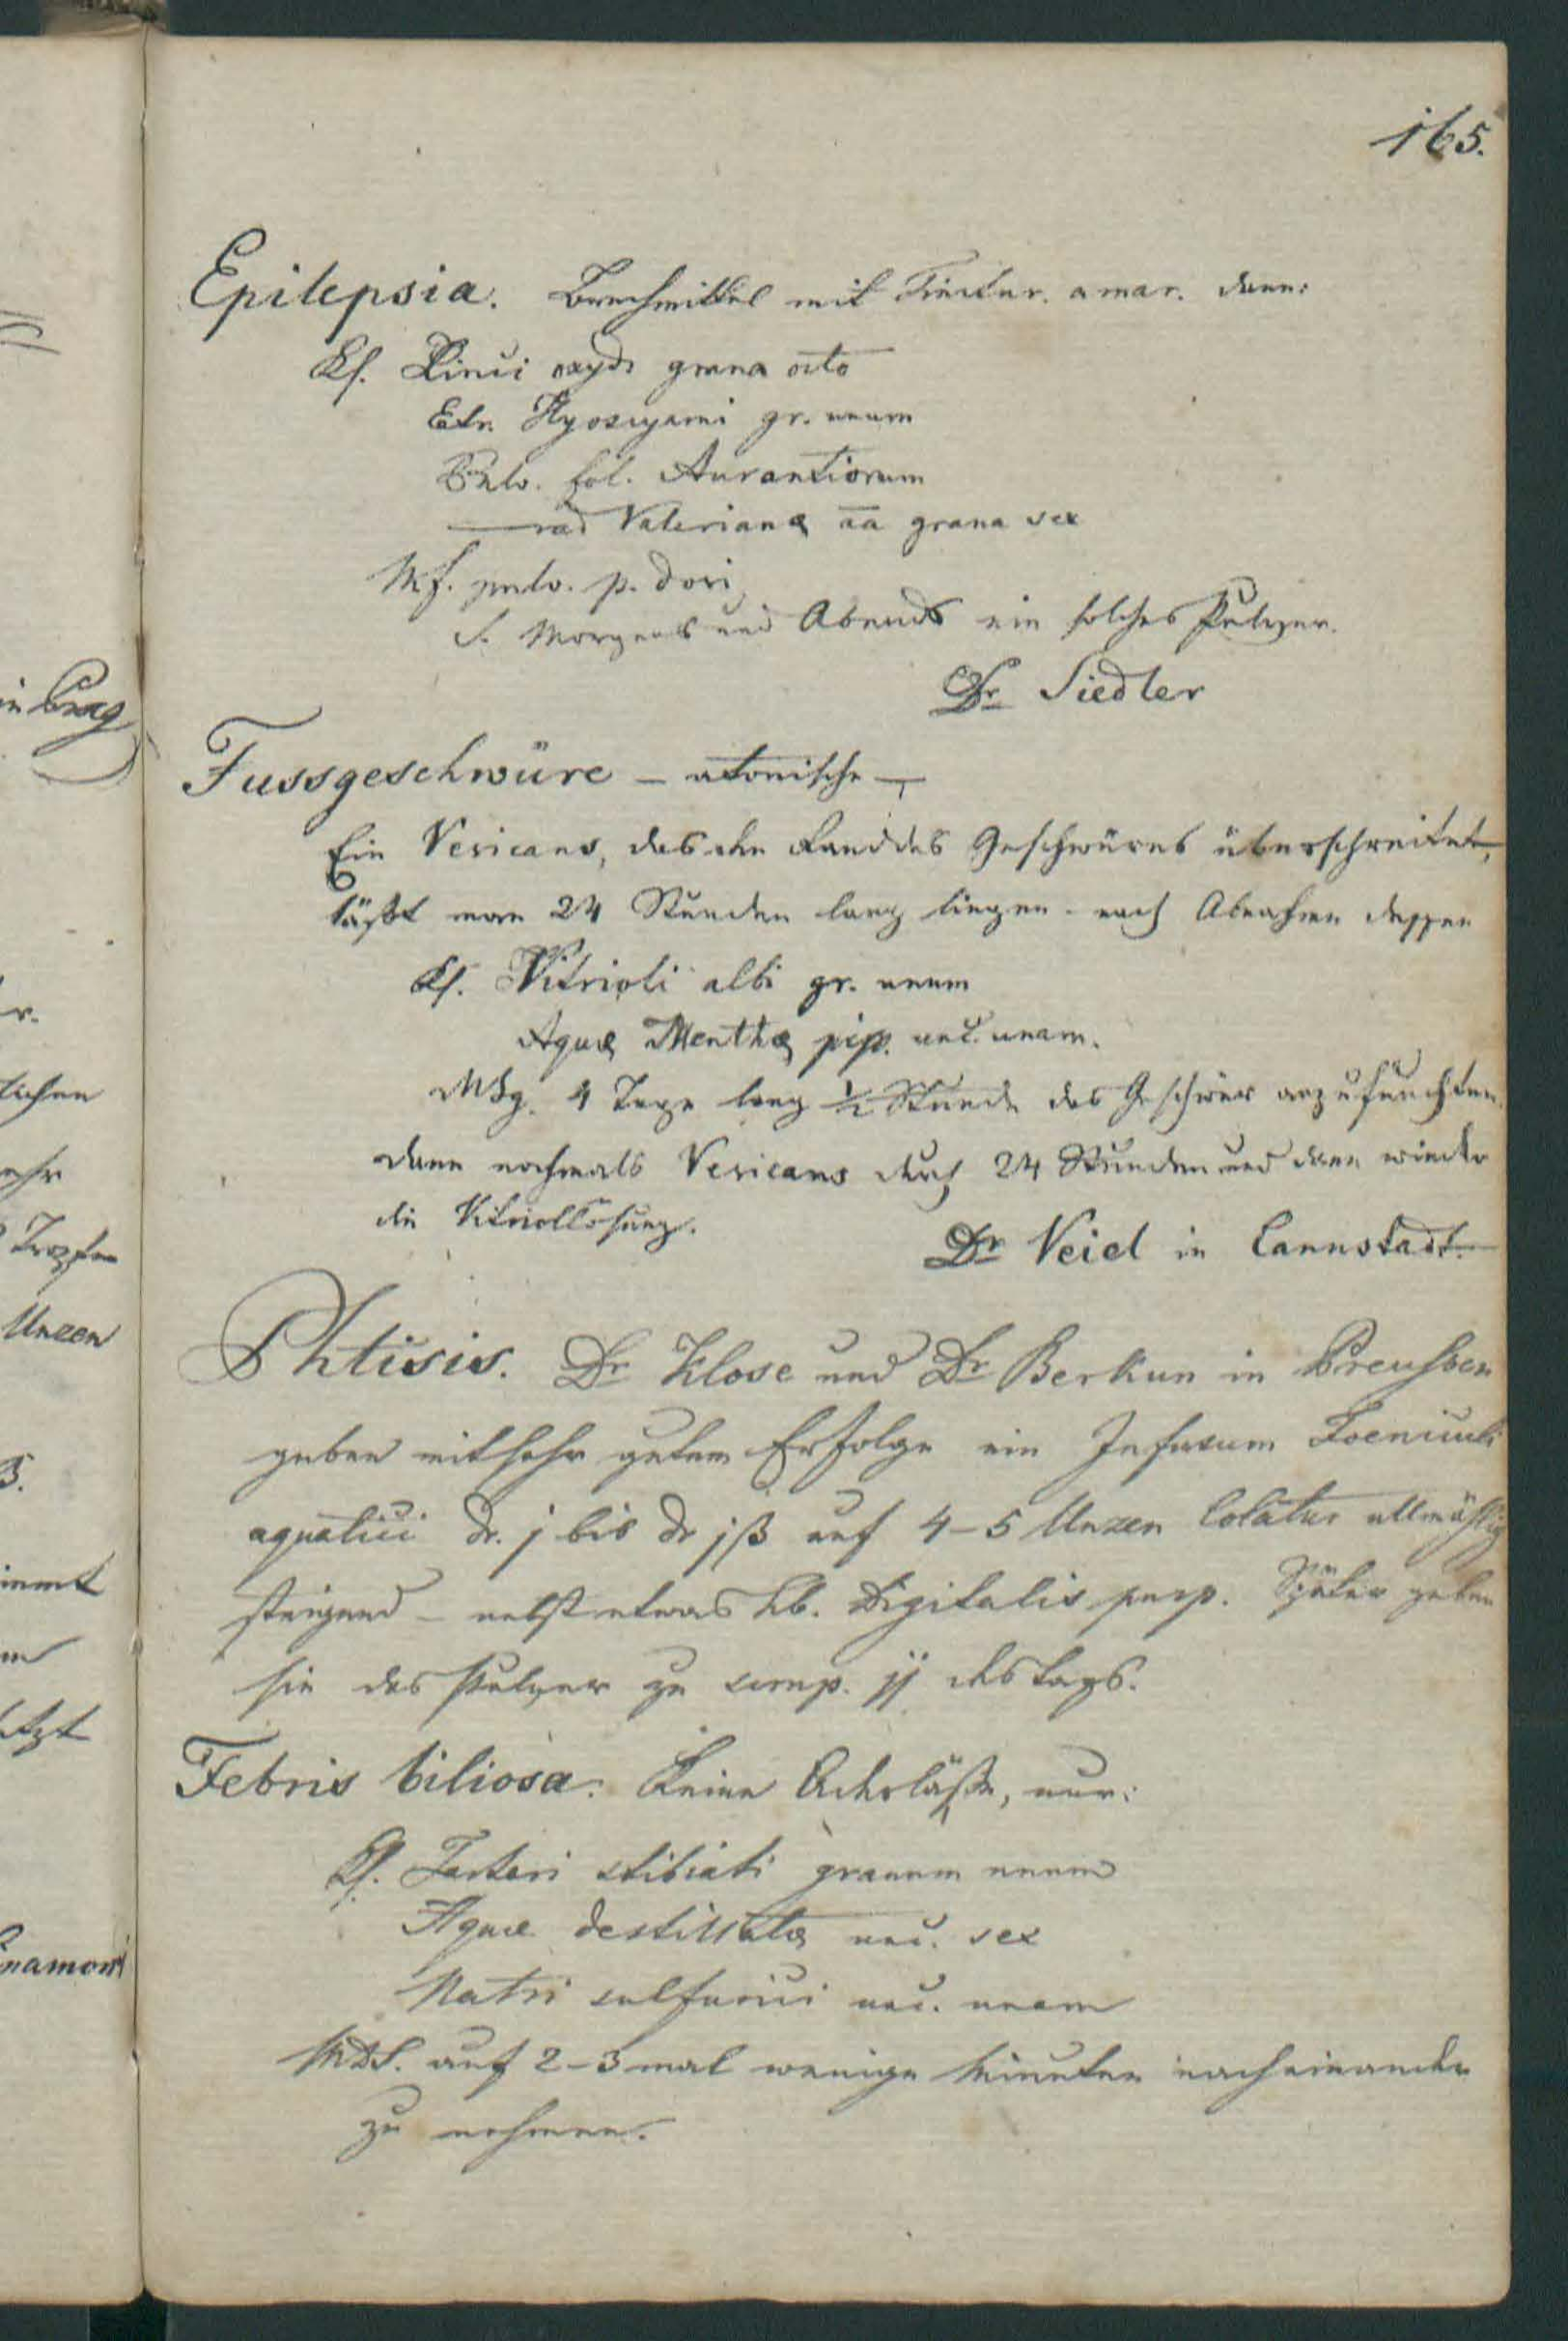 165.
Epilepsia. Brechmittel mit Tinctur. amar. dann:
Rf. Zinci oxydi grana octo
Extr. Hyosciami gr. unum
Pulv. fol. Aurantiorum
— rad Valerianæ aa grana sex
Mf. pulv. p. dosi
S. Morgens und Abends ein solches Pulver.
Dr Siedler
Fussgeschwüre – atonische –,
Ein Vesicans, das den Rand des Geschwüres überschreitet,
läßt man 24 Stunden lang liegen. nach Abnahme dessen
Rf. Vitrioli albi gr. unum
Aquæ Menthæ pip. unc. unam.
MSg. 4 Tage lang ½ Stunde das Geschwür anzufeuchten.
dann nochmals Vesicans durch 24 Stunden und dann wieder
die Vitriollösung.
Dr Veiel in Cannstadt.
Phtisis. Dr Klose und Dr Berkun in Preußen
geben mit sehr gutem Erfolge ein Infusum Foeniculi
aquatici dr. j bis dr jß auf 4–5 Unzen Colatur allmählig
steigend – nebst etwas hb. Digitalis purp. Später geben
sie das Pulver zu jj des Tags.
Febris biliosa. Keine Aderläße, nur:
Rf. Tartari stibiati granum unum
Aquæ destillatæ unc. sex
Natri sulfurici unc. unam
MDS. auf 2–3 mal wenige Minuten nacheinander
zu nehmen.